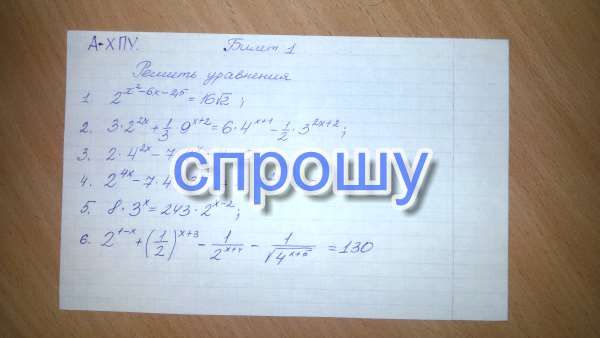 А-ХПУ. Билет 1
Решить уравнения
1. 2^{x²-6x-2,5} = 16√2 ;
2. 3·2^{2x} + 1/3 · 9^{x+2} = 6·4^{x+1} - 1/2 · 3^{2x+2} ;
3. 2·4^{2x} - 7·
спрошу
4. 2^{4x} - 7·4
5. 8·3^{x} = 243·2^{x-2} ;
6. 2^{1-x} + (1/2)^{x+3} - 1/2^{x+4} - 1/√4^{x+5} = 130